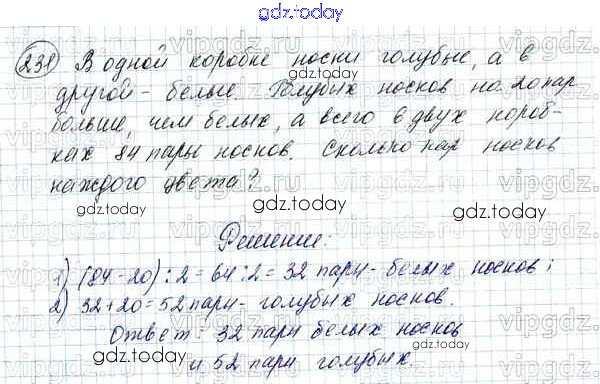 gdz.today
231 В одной коробке носки голубые, а в
другой - белые. Голубых носков на 20 пар
больше, чем белых, а всего в двух короб-
ках 84 пары носков. Сколько пар носков
каждого цвета?
Решение:
1) (84-20):2=64:2=32 пары - белых носков;
2) 32+20=52 пары - голубых носков.
Ответ: 32 пары белых носков
и 52 пары голубых.
gdz.today
gdz.today
gdz.today
gdz.today
gdz.today
gdz.today
gdz.today
gdz.today
vipgdz.ru